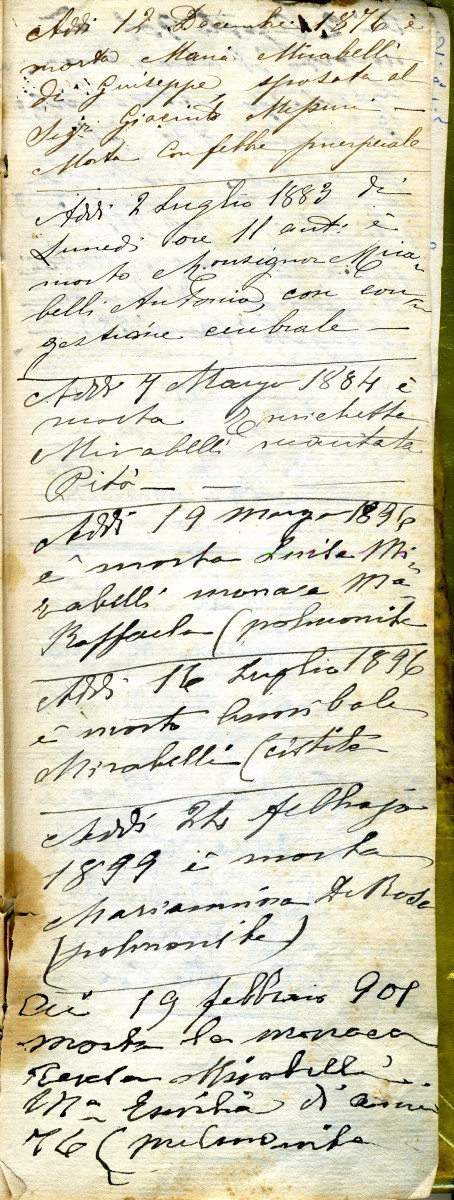 Addì 12 Decembre 1876 è
morta Maria Mirabelli
di Guiseppe, sposata al
Sigr Giacinto
Morta con febbre puerperale
Addì 2 Luglio 1883 di
Lunedì ore 11 ant: è
morto Monsignor Mira-
belli Antonio, con con-
gestione cerebrale —
Addì 7 Marzo 1884 è
morta Enrichetta
Mirabelli maritata
Pitò — — —
Addì 19 marzo 1896
è morta Luisa Mi-
rabelli monaca Ma
Raffaela (polmonite
Addì 16 Luglio 1896
è morto Annibale
Mirabelli (cistite
Addì 24 febbrajo
1899 è morta
Mariannina De Rosa
(polmonite)
19 febbraio 901
morta la monaca
Mirabelli
Ma d'anni
76 (pulmonite